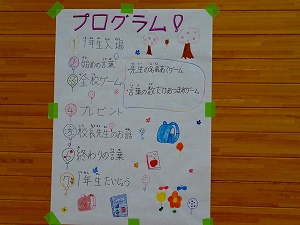 プログラム!
1 1年生入場
2 始めの言葉
3 全校ゲーム
・先生の名前あてゲーム
・言葉の数だけあつまれゲーム
4 プレゼント
5 校長先生のお話
6 終わりの言葉
7 1年生たいじょう